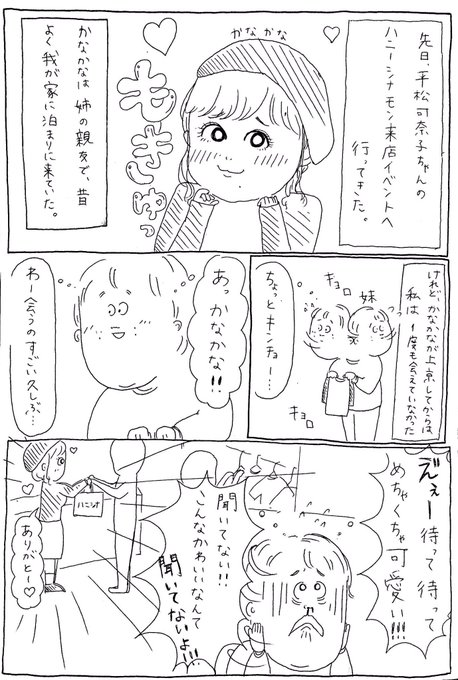 先日、平松可奈子ちゃんの
ハニーシナモン来店イベントへ
行ってきた。
かなかな
もきゅっ
かなかなは姉の親友で、昔
よく我が家に泊まりに来ていた。
けれどかなかなが上京してからは、
私は1度も会えていなかった
妹
キョロ
キョロ
ちょっとキンチョー…
あっかなかな!!
わー会うのすごい久しぶ…
え゛ぇー待って待って
めちゃくちゃ可愛い!!!
聞いてない!!
こんなかわいいなんて
聞いてないよー
ハニシナ
ありがとー♡